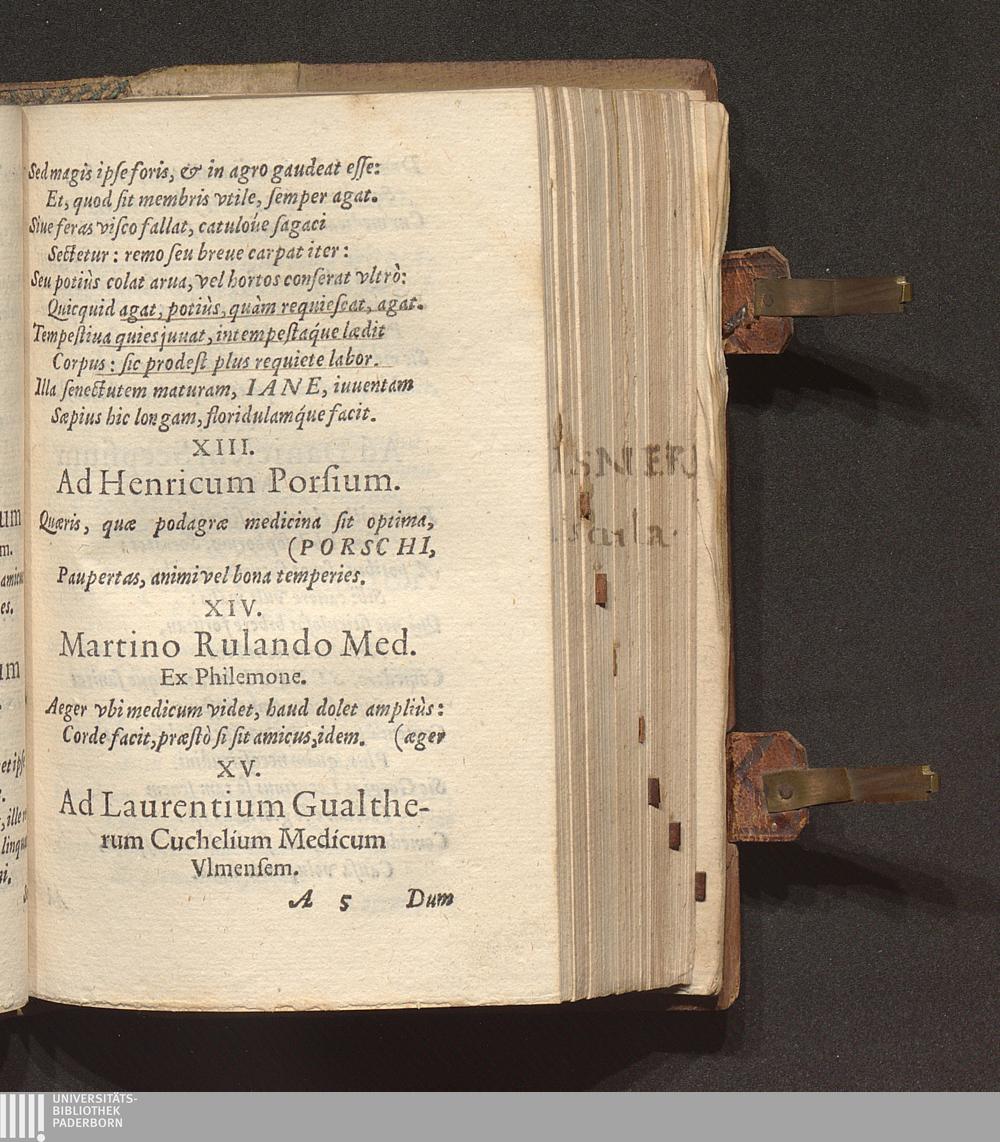 Sed magis ipse foris, & in agro gaudeat esse:
Et, quod sit membris vtile, semper agat.
Siue feras visco fallat, catulóue sagaci
Sectetur: remo seu breue carpat iter:
Seu potiùs colat arua, vel hortos conserat vltrò:
Quicquid agat, potiùs, quàm requiescat, agat.
Tempestiua quies juuat, intempestaq́ue lædit
Corpus: sic prodest plus requiete labor.
Illa senectutem maturam, IANE, iuuentam
Sæpius hic longam, floridulamq́ue facit.
XIII.
Ad Henricum Porsium.
Quæris, quæ podagræ medicina sit optima,
(PORSCHI,
Paupertas, animi vel bona temperies.
XIV.
Martino Rulando Med.
Ex Philemone.
Aeger vbi medicum videt, haud dolet ampliùs:
Corde facit, præstò si sit amicus, idem. (æger
XV.
Ad Laurentium Gualthe-
rum Cuchelium Medicum
Vlmensem.
A 5 Dum
UNIVERSITÄTS-
BIBLIOTHEK
PADERBORN